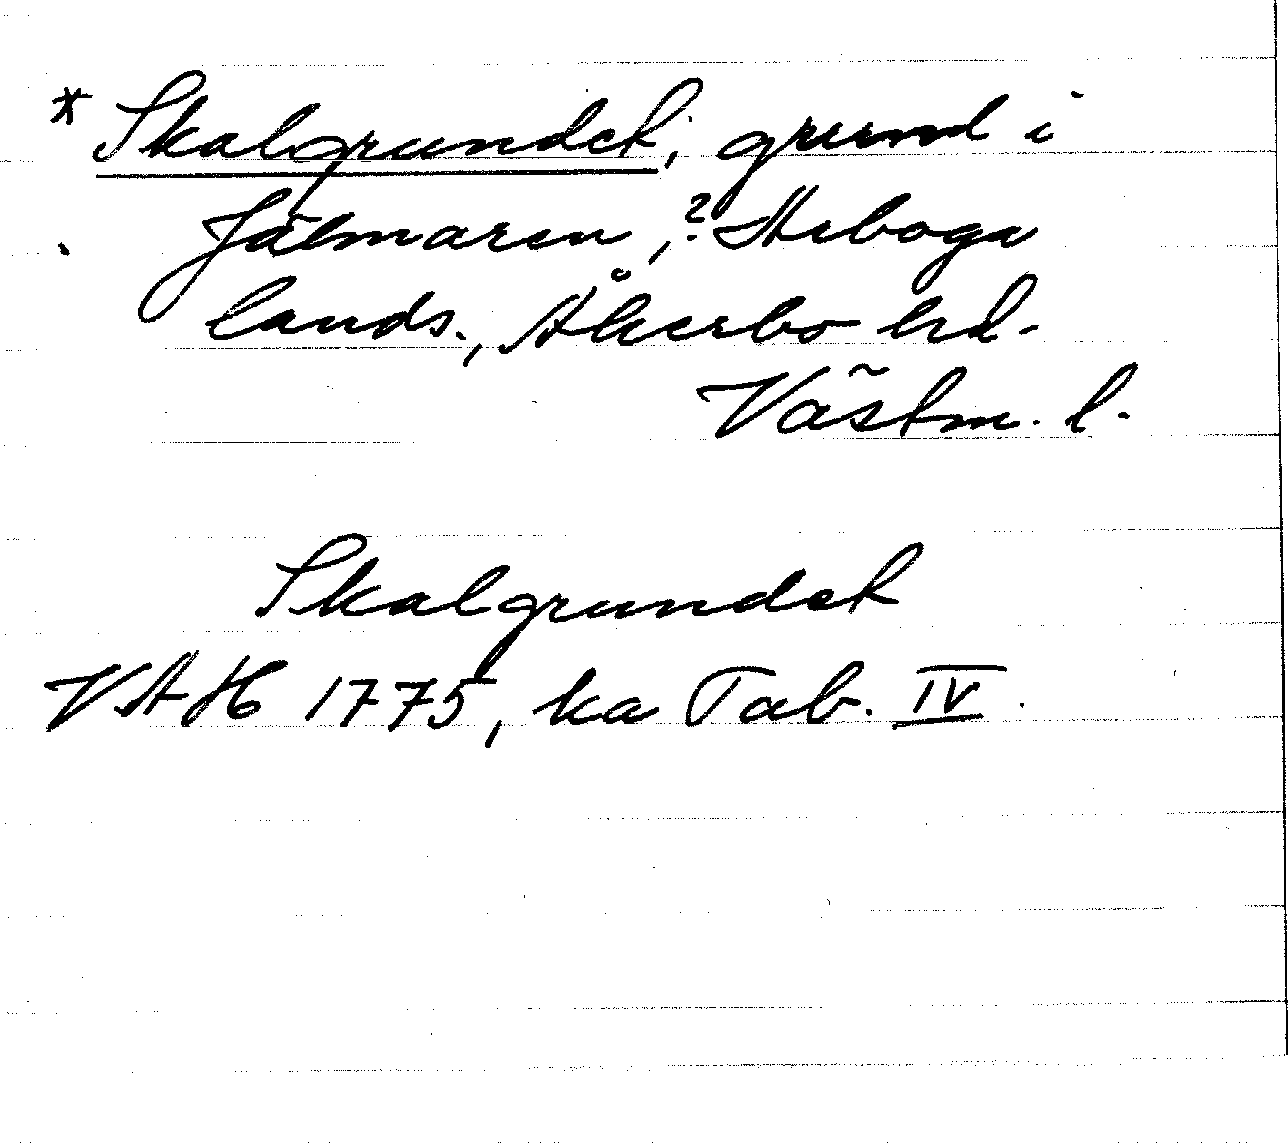 * Skalgrundet, grund i
Jälmaren, ? Arboga
lands., Åkerbo hd.
Västm. l.
Skalgrundet
VAH 1775, ka Tab. IV